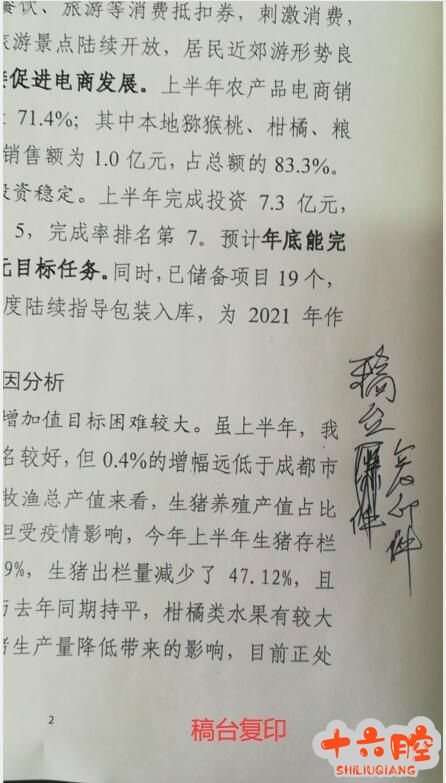 餐饮、旅游等消费抵扣券，刺激消费，
旅游景点陆续开放，居民近郊游形势良
促进电商发展。上半年农产品电商销
71.4%；其中本地猕猴桃、柑橘、粮
销售额为 1.0 亿元，占总额的 83.3%。
投资稳定。上半年完成投资 7.3 亿元，
5，完成率排名第 7。预计年底能完
元目标任务。同时，已储备项目 19 个，
度陆续指导包装入库，为 2021 年作
因分析
增加值目标困难较大。虽上半年，我
名较好，但 0.4%的增幅远低于成都市
牧渔总产值来看，生猪养殖产值占比
但受疫情影响，今年上半年生猪存栏
9%，生猪出栏量减少了 47.12%，且
与去年同期持平，柑橘类水果有较大
猪生产量降低带来的影响，目前正处
稿台原件
复印件
2
稿台复印
十六腔
SHILIUQIANG